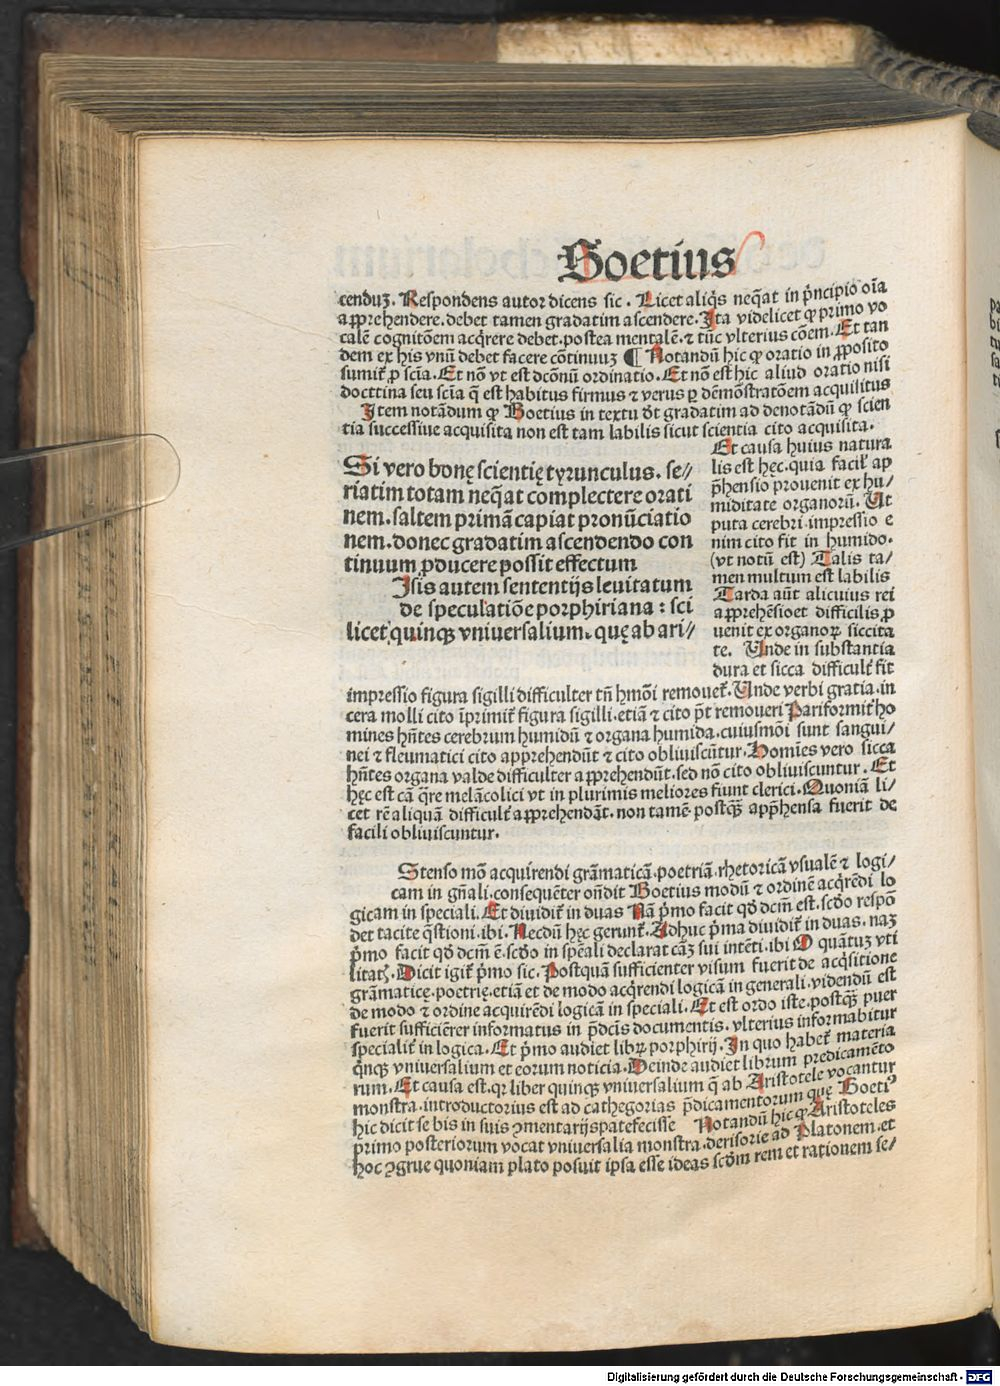 Boetius
cenduʒ. Respondens autor dicens sic. Licet aliq̃s neq̃at in p̃ncipio oĩa
apprehendere. debet tamen gradatim ascendere. Ita videlicet ꝙ primo vo
calẽ cognitõem acq̃rere debet. postea mentalẽ. ⁊ tũc vlterius cõem. Et tan
dem ex his vnũ debet facere cõtinuuʒ ¶ Notandũ hic ꝙ oratio in ꝓposito
sumit̃ ꝓ scĩa. Et nõ vt est dcõnũ ordinatio. Et nõ est hic aliud oratio nisi
docttina seu scĩa q̃ est habitus firmus ⁊ verus ꝑ dẽmõstratõem acquisitus
Item notãdum ꝙ Boetius in textu dt̃ gradatim ad denotãdũ ꝙ scien
tia successiue acquisita non est tam labilis sicut scientia cito acquisita.
Si vero bonę scientię tyrunculus. se//
riatim totam neq̃at complectere orati
nem. saltem primã capiat pronũciatio
nem. donec gradatim ascendendo con
tinuum ꝓducere possit effectum
Isis autem sententijs leuitatum
de speculatiõe porphiriana : sci
licet quinqꝫ vniuersalium. quę ab ari//
Et causa huius natura
lis est hęc. quia facil̃ ap
p̃hensio prouenit ex hu/
miditate organorũ. Ut
puta cerebri. impressio e
nim cito fit in humido.
(vt notũ est) Talis ta/
men multum est labilis
Tarda aũt alicuius rei
apprehẽsio et difficilis ꝓ
uenit ex organoꝝ siccita
te. Unde in substantia
dura et sicca difficult̃ fit
impressio figura sigilli difficulter tñ hmõi remouet̃. Unde verbi gratia. in
cera molli cito ĩprimit̃ figura sigilli. etiã ⁊ cito p̃t remoueri Pariformit̃ ho
mines hñtes cerebrum humidũ ⁊ organa humida. cuiusmõi sunt sangui/
nei ⁊ fleumatici cito apprehendũt ⁊ cito obliuiscũtur. Homĩes vero sicca
hñtes organa valde difficulter apprehendũt. sed nõ cito obliuiscuntur. Et
hęc est cã q̃re melãcolici vt in plurimis meliores fiunt clerici. Quoniã li/
cet rẽ aliquã difficult̃ apprehendãt. non tamẽ postq̃ꝫ app̃hensa fuerit de
facili obliuiscuntur.
Stenso mõ acquirendi grãmaticã. poetriã. rhetoricã vsualẽ ⁊ logi/
cam in gñali. consequẽter oñdit Boetius modũ ⁊ ordinẽ acq̃rẽdi lo
gicam in speciali. Et diuidit̃ in duas Nã p̃mo facit qđ dcm̃ est. scđo respõ
det tacite q̃stioni. ibi. Necdũ hęc gerunt̃. Adhuc p̃ma diuidit̃ in duas. naʒ
p̃mo facit qđ dcm̃ ẽ. scđo in spẽali declarat cãʒ sui intẽti. ibi O quãtuʒ vti
litatꝭ. Dicit igit̃ p̃mo sic. Postquã sufficienter visum fuerit de acq̃sitione
grãmaticę. poetrię. etiã et de modo acq̃rendi logicã in generali. videndũ est
de modo ⁊ ordine acquirẽdi logicã in speciali. Et est ordo iste. postq̃ꝫ puer
fuerit sufficiẽrer informatus in p̃dcĩs documentis. vlterius informabitur
specialit̃ in logica. Et p̃mo audiet libꝝ porphirij. In quo habet̃ materia
q̃nqꝫ vniuersalium et eorum noticia. Deinde audiet librum predicamẽto
rum. Et causa est. qꝛ liber quinqꝫ vniuersalium q̃ ab Aristotele vocantur
monstra. introductorius est ad cathegorias p̃dicamentorum quę Boetiꝰ
hic dicit se bis in suis ꝯmentarijs patefecisse Notandũ hic ꝙ Aristoteles
primo posteriorum vocat vniuersalia monstra. derisorie ad Platonem. et
hoc ꝯgrue quoniam plato posuit ipsa esse ideas scđm rem et rationem se/
Digitalisierung gefördert durch die Deutsche Forschungsgemeinschaft - DFG